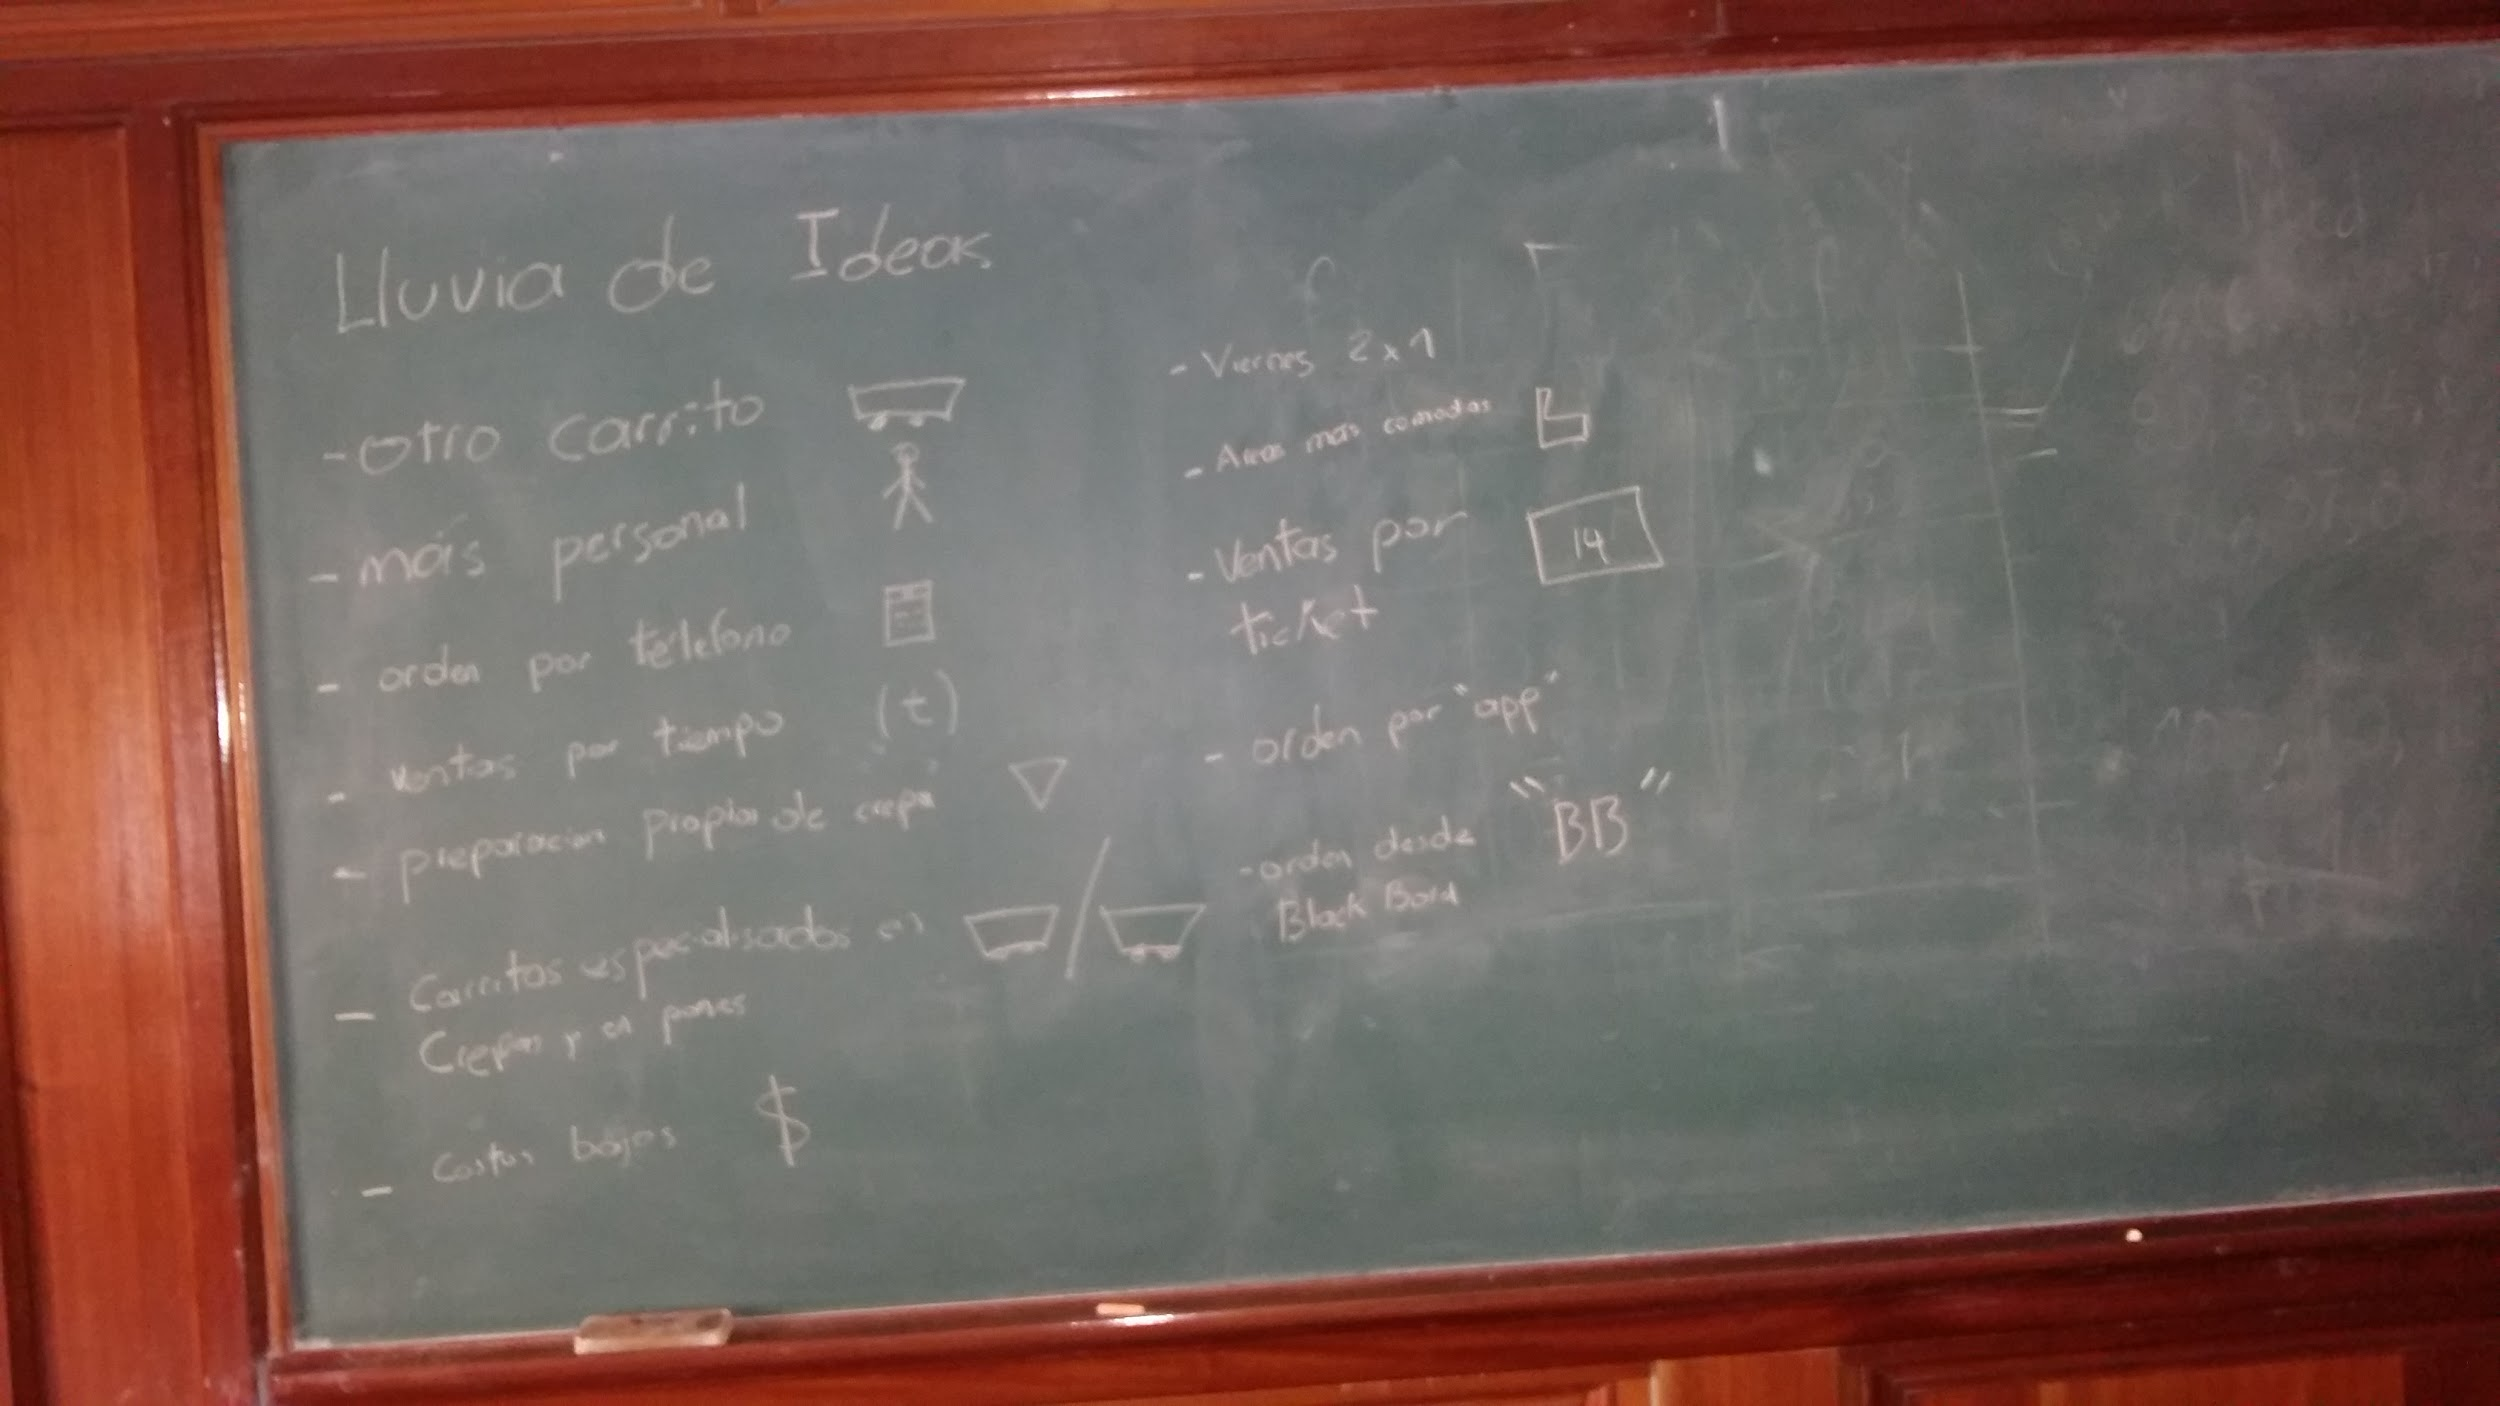 Lluvia de Ideas
- otro carrito
- más personal
- orden por teléfono
- ventas por tiempo (t)
- preparacion propia de crepa
- Carritos especialisados en
Crepas y en panes
- Costos bajos $
- Viernes 2x1
- Areas más comodas
- Ventas por
ticket
14
- orden por "app"
- orden desde "BB"
Black Bord